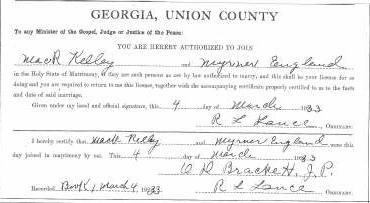 GEORGIA, UNION COUNTY
To any Minister of the Gospel, Judge or Justice of the Peace:
YOU ARE HEREBY AUTHORIZED TO JOIN
MacR Kelley and Myrner England
in the Holy State of Matrimony, if they are such persons as are by law authorized to marry, and this shall be your license for so
doing and you are required to return to me this license, together with the accompanying certificate properly certified to as to the facts
and date of said marriage.
Given under my hand and official signature, this 4 day of March 1933
R L Lance, ORDINARY.
I hereby certify that Mack Kelley and Myrner England were this
day joined in matrimony by me. This 4 day of March 1933
O D Brackett, J.P.
Recorded Book 1, March 4 1933. R L Lance ORDINARY.